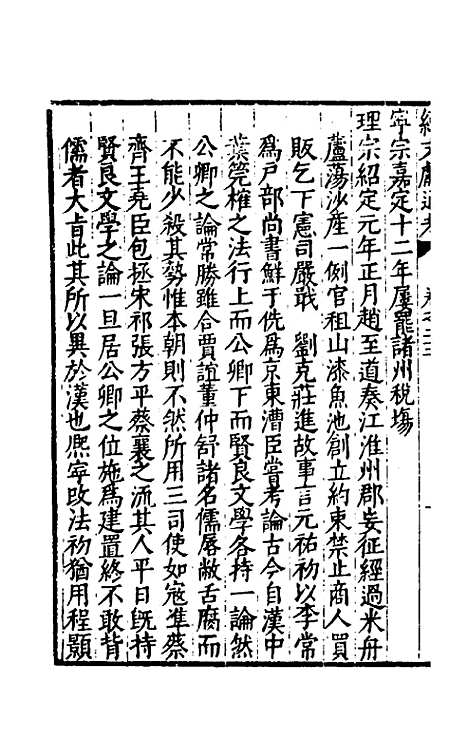 續文獻通考
寧宗嘉定十二年屢罷諸州稅塲
理宗紹定元年正月趙至道奏江淮州郡妄征經過米舟
蘆蕩沙産一例官租山漆魚池創立約束禁止商人買
販乞下憲司嚴戢 劉克莊進故事言元祐初以李常
爲戶部尚書鮮于侁爲京東漕臣嘗考論古今自漢中
葉筦榷之法行上而公卿下而賢良文學各持一論然
公卿之論常勝雖合賈誼董仲舒諸名儒唇敝舌腐而
不能少殺其勢惟本朝則不然所用三司使如寇準蔡
齊王堯臣包拯宋祁張方平蔡襄之流其人平日旣持
賢良文學之論一旦居公卿之位施爲建置終不敢背
儒者大旨此其所以異於漢也熈寧改法初猶用程顥